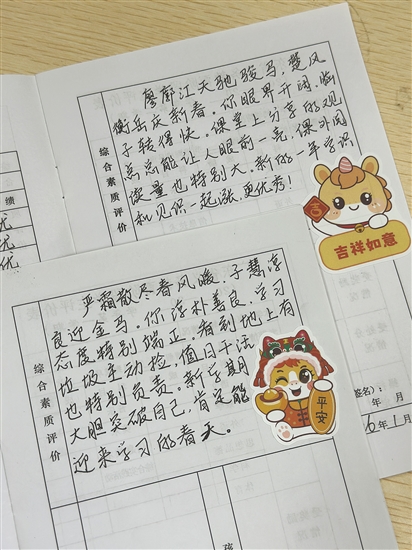 廖廓江天驰骏马，楚风
衡岳庆新春。你眼界开阔，脑
子转得快。课堂上分享的观
点总能让人眼前一亮，课外阅
读量也特别大。新的一年学识
和见识一起涨，更优秀！
综合素质评价
绩
优
优
优
吉
吉祥如意
严霜散尽春风暖，子慧淳
良迎金马。你淳朴善良，学习
态度特别端正。看到地上有
垃圾主动捡，值日干活
也特别负责。新学期
大胆突破自己，肯定能
迎来学习的春天。
综合素质评价
平安
签名）：
年 月
6年1月